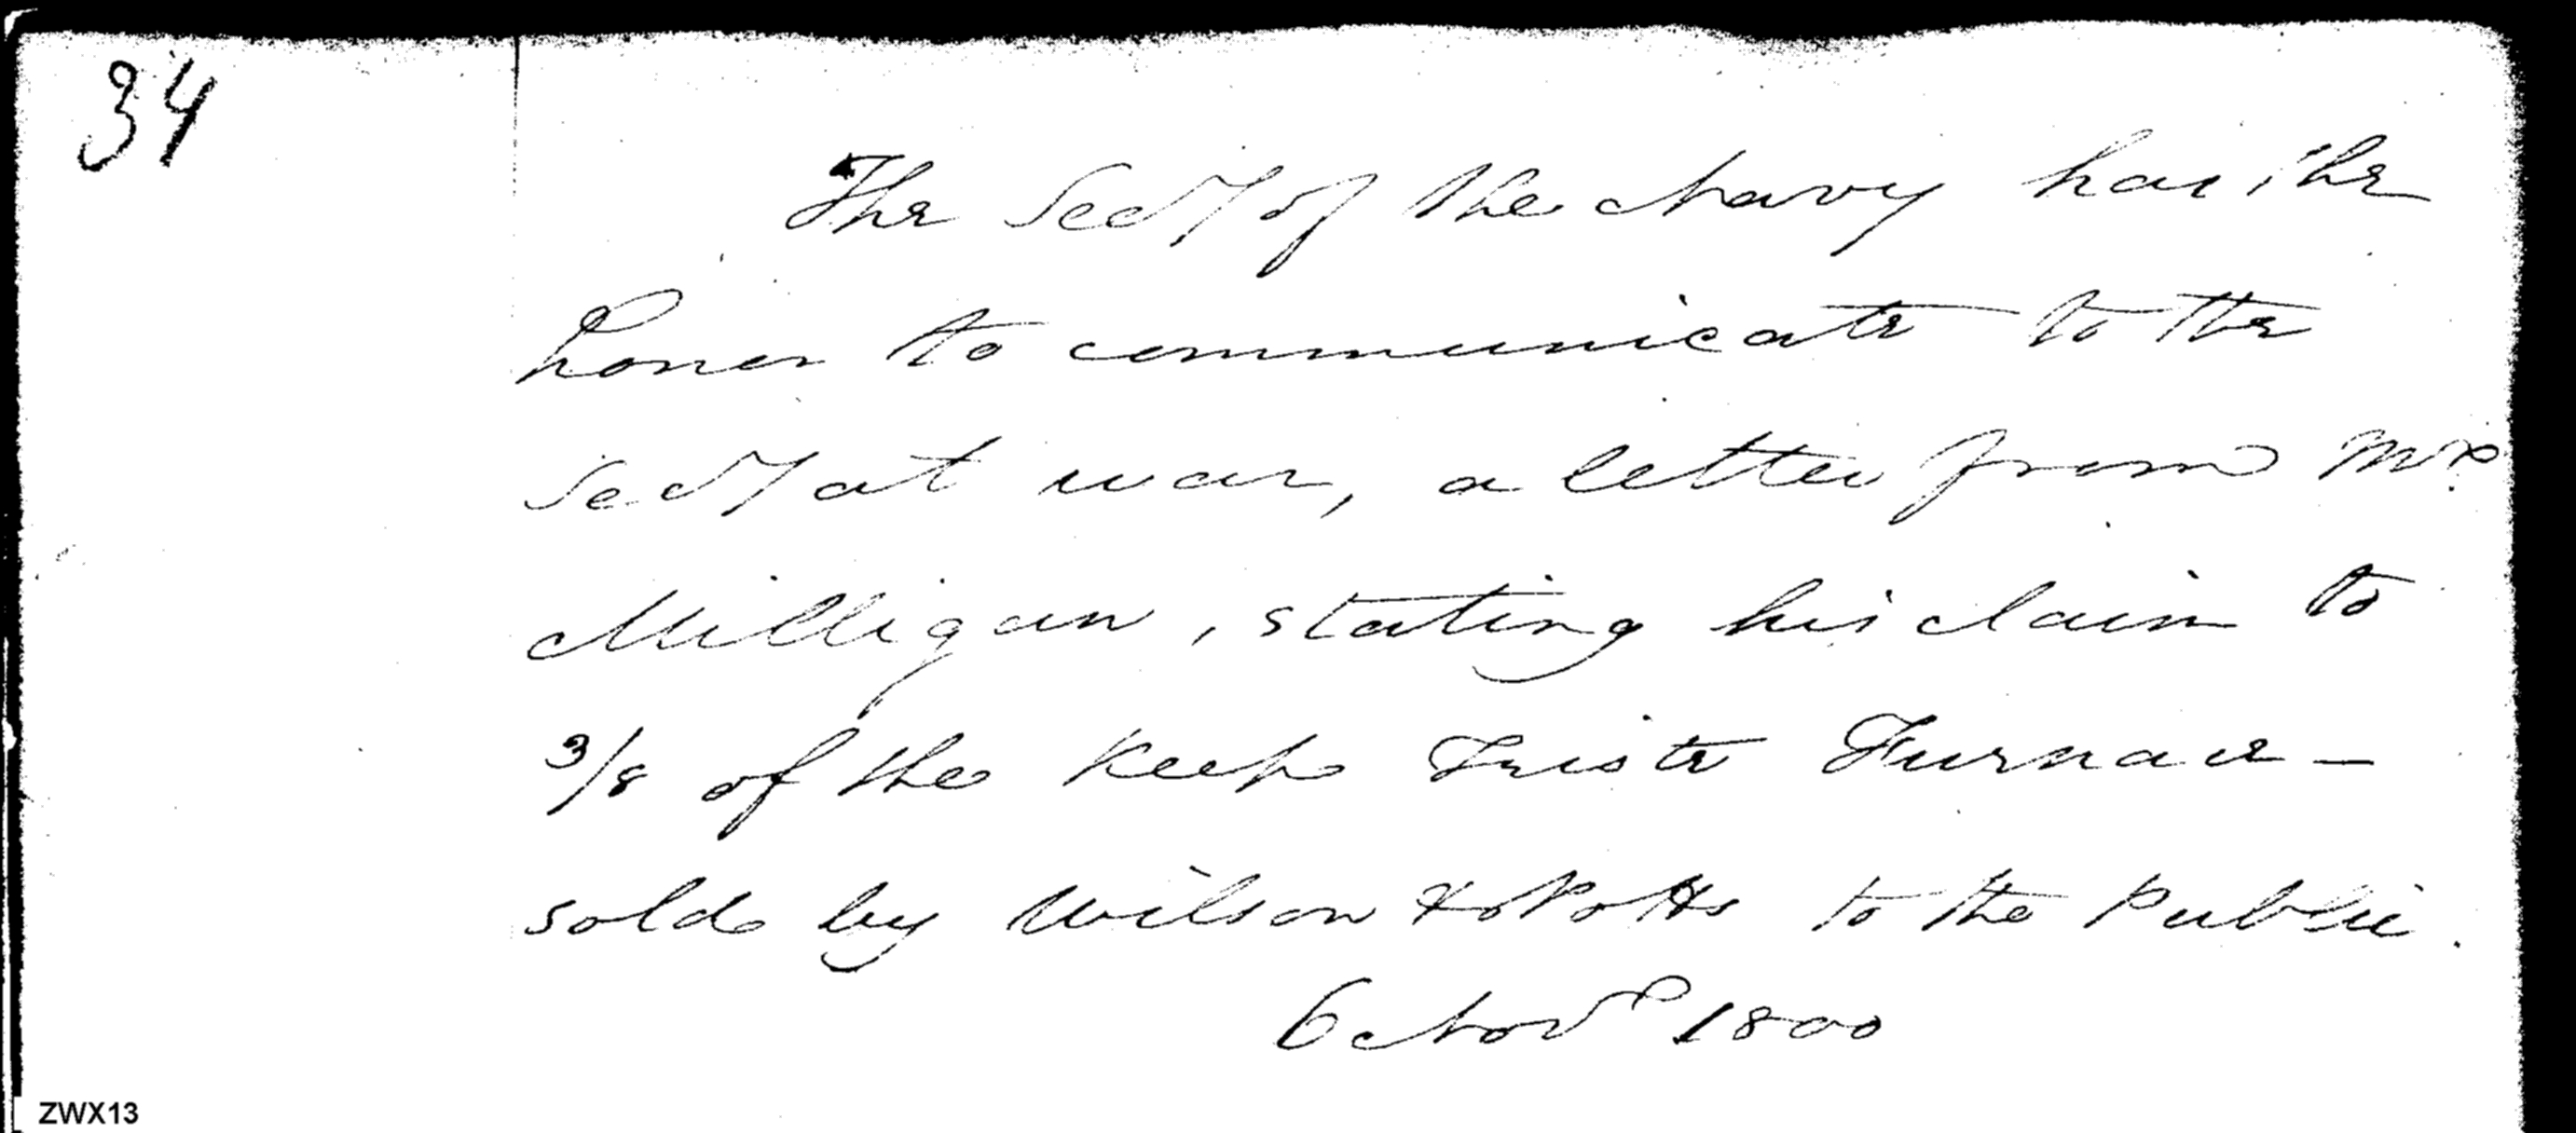 34
The Secy of the Navy has the
honor to communicate to the
Secy at war, a letter from Mr.
Milligan, stating his claim to
3/8 of the Keep Triste Furnace –
sold by Wilson & Potts to the Public.
6 Novr 1800
ZWX13